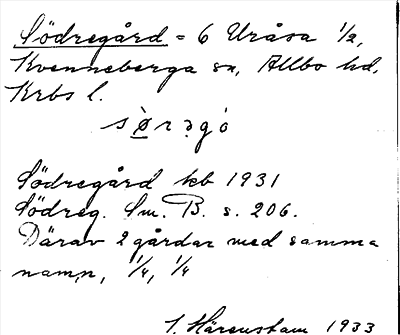 Södregård = 6 Uråsa 1/2,
Kvenneberga sn, Allbo hd,
Krbs l.
sø̀rəgó
Södregård kb 1931
Södreg. Sm. B. s. 206.
Därav 2 gårdar med samma
namn, 1/4, 1/4
J. Härenstam 1933